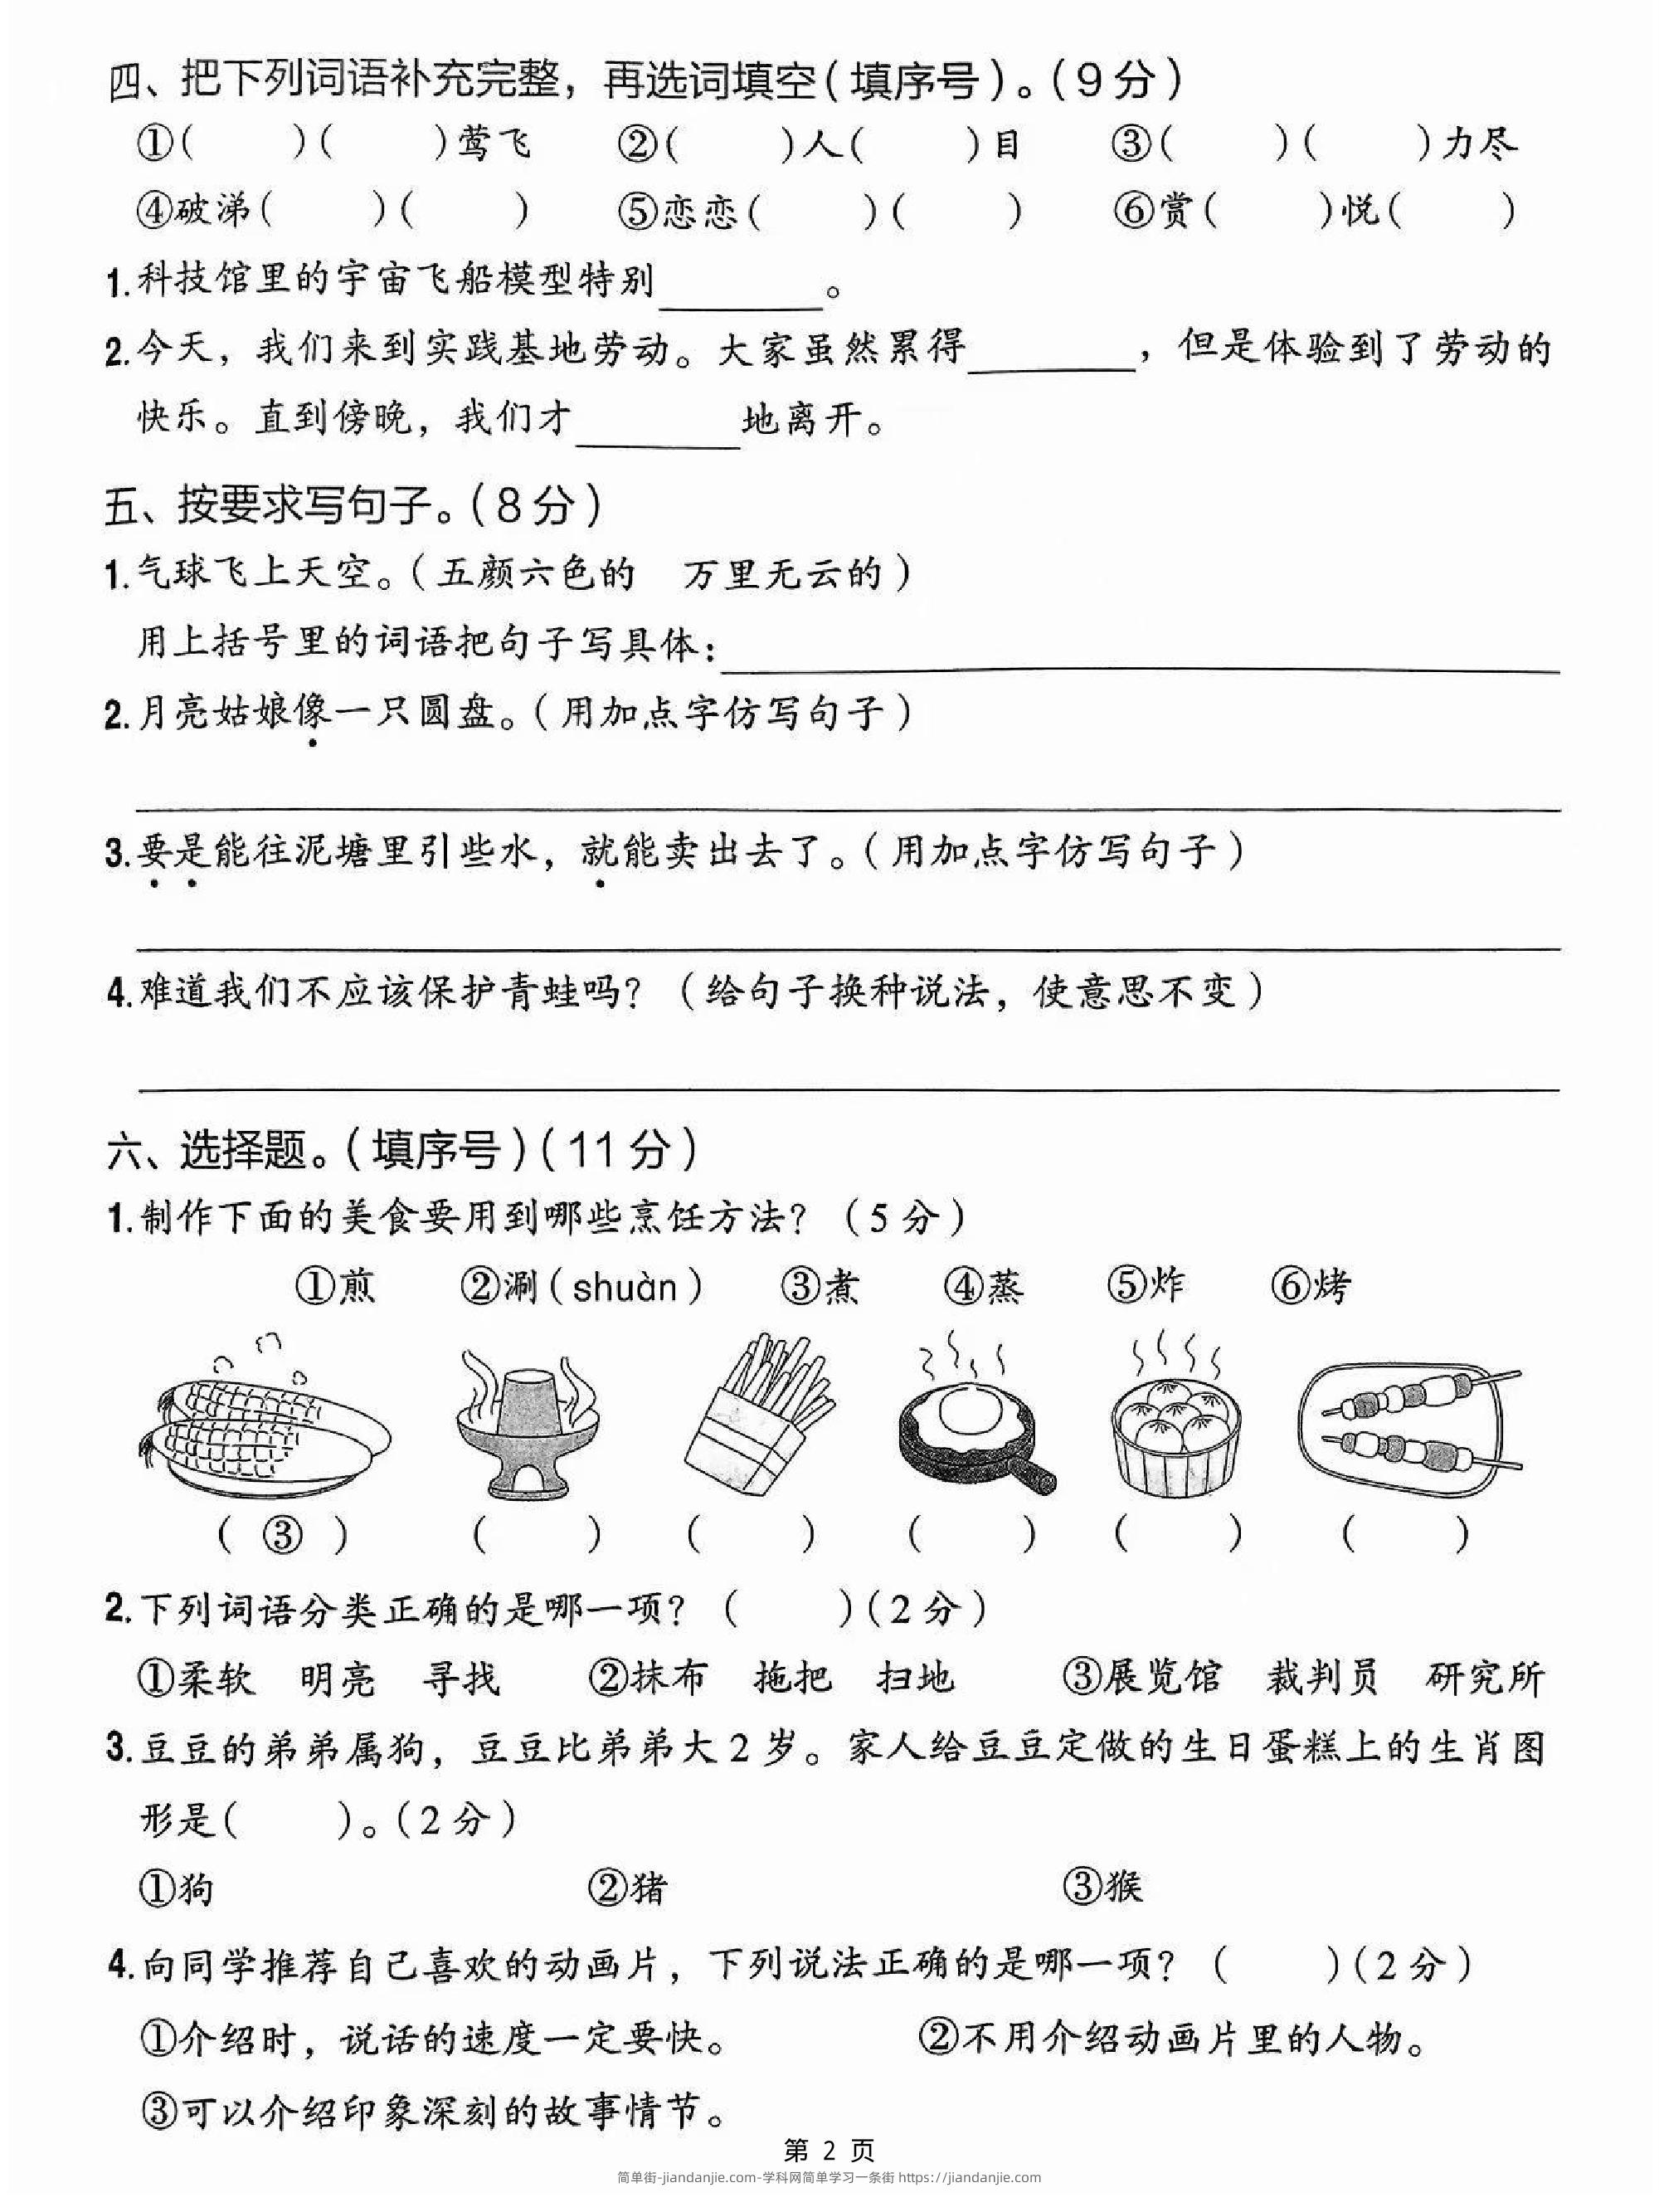 四、把下列词语补充完整，再选词填空(填序号)。(9分)
①(　　)(　　)莺飞　②(　　)人(　　)目　③(　　)(　　)力尽
④破涕(　　)(　　)　⑤恋恋(　　)(　　)　⑥赏(　　)悦(　　)
1.科技馆里的宇宙飞船模型特别________。
2.今天，我们来到实践基地劳动。大家虽然累得________，但是体验到了劳动的
快乐。直到傍晚，我们才________地离开。
五、按要求写句子。(8分)
1.气球飞上天空。(五颜六色的　万里无云的)
用上括号里的词语把句子写具体：________
2.月亮姑娘像一只圆盘。(用加点字仿写句子)
3.要是能往泥塘里引些水，就能卖出去了。(用加点字仿写句子)
4.难道我们不应该保护青蛙吗？(给句子换种说法，使意思不变)
六、选择题。(填序号)(11分)
1.制作下面的美食要用到哪些烹饪方法？(5分)
①煎　②涮(shuàn)　③煮　④蒸　⑤炸　⑥烤
(③)　(　　)　(　　)　(　　)　(　　)　(　　)
2.下列词语分类正确的是哪一项？(　　)(2分)
①柔软　明亮　寻找　②抹布　拖把　扫地　③展览馆　裁判员　研究所
3.豆豆的弟弟属狗，豆豆比弟弟大2岁。家人给豆豆定做的生日蛋糕上的生肖图
形是(　　)。(2分)
①狗　②猪　③猴
4.向同学推荐自己喜欢的动画片，下列说法正确的是哪一项？(　　)(2分)
①介绍时，说话的速度一定要快。　②不用介绍动画片里的人物。
③可以介绍印象深刻的故事情节。
第 2 页
简单街-jiandanjie.com-学科网简单学习一条街 https://jiandanjie.com